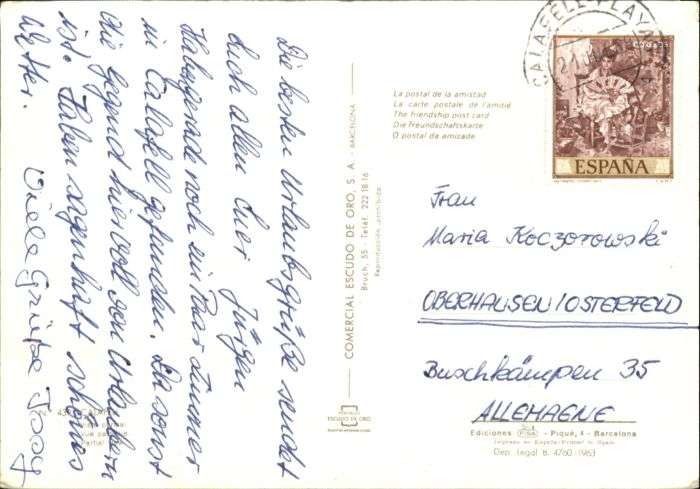 Die besten Urlaubsgrüße sendet
Euch allen Euer Jürgen
Habe gerade noch ein Paar Zimmer
in Calafell gefunden. Da sonst
die Gegend hier voll von Urlaubern
ist. Haben sagenhaft schönes
Wetter.
Viele Grüße
COMERCIAL ESCUDO DE ORO, S. A. - BARCELONA
Bruch, 55 - Teléf. 222 18 16
Reproducción prohibida
ESCUDO DE ORO
La postal de la amistad
La carte postale de l'amitié
The friendship post card
Die Freundschaftskarte
O postal da amizade
CALAFELL-PLAYA
CORREOS
ESPAÑA
Frau
Maria Koczorowski
OBERHAUSEN/OSTERFELD
Buschkämpen 35
ALLEMAGNE
Ediciones FISA - Piqué, 4 - Barcelona
Impreso en España-Printed in Spain
Dep. Legal B. 4760-1963